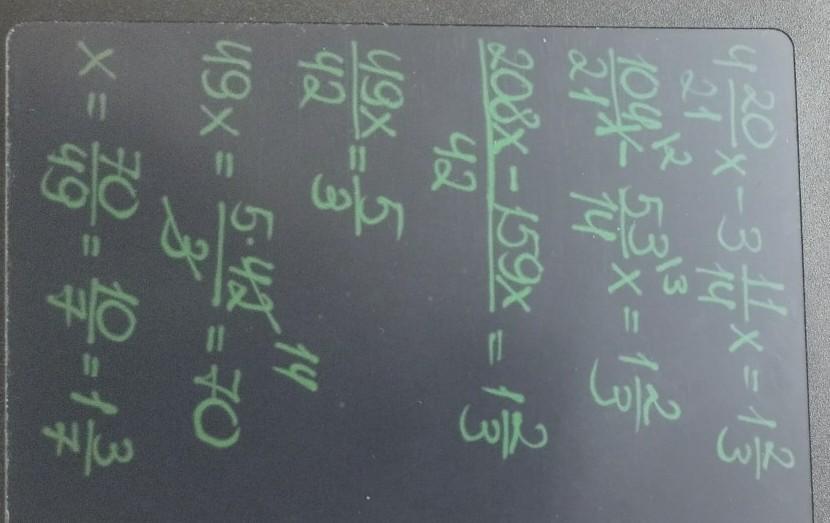 4 20/21 x - 3 11/14 x = 1 2/3
104/21 \2 x - 53/14 \3 x = 1 2/3
208x - 159x / 42 = 1 2/3
49x/42 = 5/3
49x = 5·42 14 / 3 = 70
x = 70/49 = 10/7 = 1 3/7